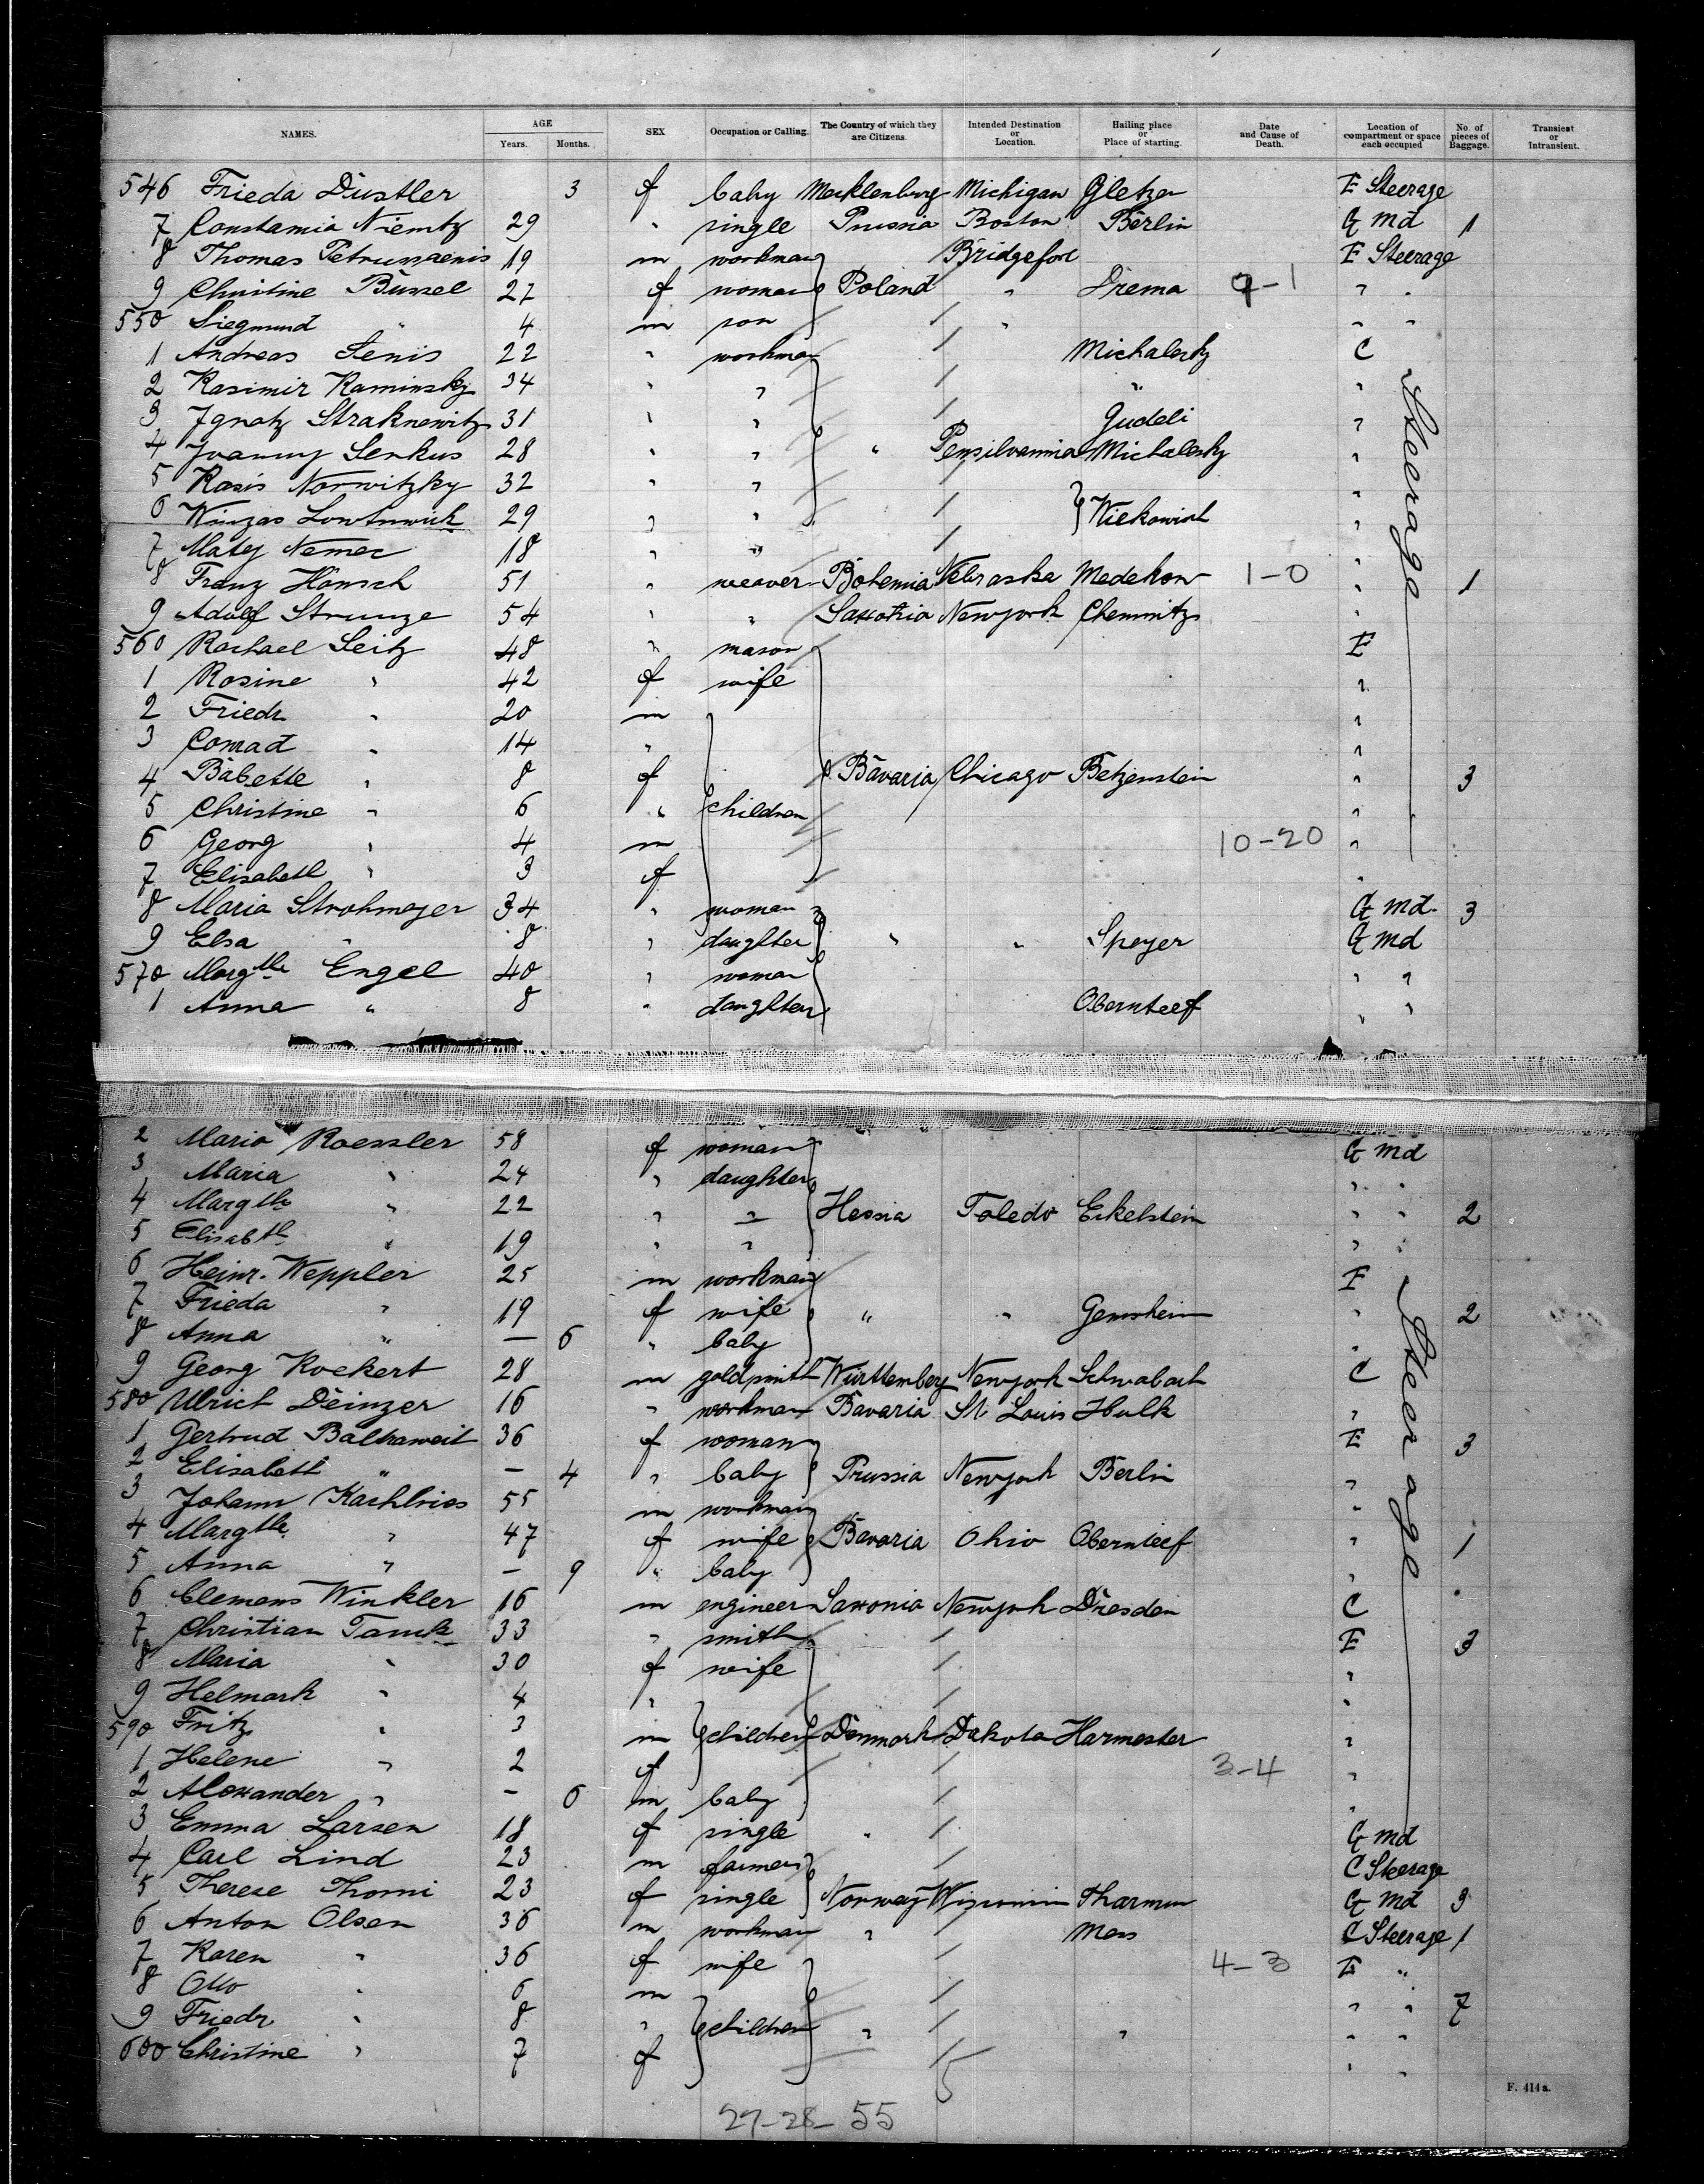 NAMES. AGE Years. Months. SEX Occupation or Calling. The Country of which they are Citizens. Intended Destination or Location. Hailing place or Place of starting. Date and Cause of Death. Location of compartment or space each occupied No. of pieces of Baggage. Transient or Intransient.
546 Frieda Düstler 3 f baby Mecklenburg Michigan Gletzer E Steerage
7 Constamia Niemtz 29 " single Prussia Boston Berlin G md 1
8 Thomas 19 m workman Bridgeford E Steerage
9 Christine Bussel 27 f woman Poland " Drema 9-1 " "
550 Siegmund " 4 m son " " "
1 Andreas Senis 22 " workman Michalesky C
2 Kasimir Kaminsky 34 " " " "
3 Ignatz Straknewitz 31 " " Gudeli "
4 Ivanny Serkus 28 " " " Pensilvannia Michalesky "
5 Kasis Norwitzky 32 " " "
6 Winzas 29 " " Wiekowisch "
7 Matej Nemec 18 " " "
8 Franz Hönsch 51 " weaver Bohemia Nebraska Medekow 1-0 " 1
9 Adolf Strunze 54 " " Saxonia Newyork Chemnitz "
560 Rachael Seitz 48 " mason E
1 Rosine " 42 f wife "
2 Friedr. " 20 m "
3 Conrad " 14 " "
4 Babette " 8 f Bavaria Chicago Betzenstein " 3
5 Christine " 6 " children "
6 Georg " 4 m 10-20 "
7 Elisabeth " 3 f "
8 Maria Strohmayer 34 " woman G md. 3
9 Elsa " 8 " daughter " " Speyer G md
570 Margthe Engel 40 " woman " "
1 Anna " 8 " daughter Obernteef " "
Steerage
2 Maria Roessler 58 f woman G md
3 Maria " 24 " daughter " "
4 Margthe " 22 " " Hessia Toledo Eckelstein " " 2
5 Elisabth " 19 " " " "
6 Heinr. Weppler 25 m workman E
7 Frieda " 19 f wife " " Gernsheim " 2
8 Anna " — 6 " baby "
9 Georg Kockert 28 m goldsmith Württemberg Newyork Schwabach C
580 Ulrich Deinzer 16 " workman Bavaria St. Louis Hulk "
1 Gertrud Balthaweit 36 f woman E 3
2 Elisabeth " — 4 " baby Prussia Newyork Berlin "
3 Johann 55 m workman "
4 Margthe " 47 f wife Bavaria Ohio Obernteef " 1
5 Anna " — 9 " baby "
6 Clemens Winkler 16 m engineer Saxonia Newyork Dresden C
7 Christian Tanck 33 " smith E 3
8 Maria " 30 f wife "
9 Helmark " 4 " "
590 Fritz " 3 m children Denmark Dakota Harmester "
1 Helene " 2 f 3-4 "
2 Alexander " — 6 m baby "
3 Emma Larsen 18 f single " G md
4 Carl Lind 23 m farmer C Steerage
5 Therese Thomi 23 f single Norway Wisconsin Tharmun G md 3
6 Anton Olsen 36 m workman " Mos C Steerage 1
7 Karen " 36 f wife 4-3 E "
8 Otto " 6 m " " 7
9 Friedr " 8 " children " " " "
600 Christine " 7 f " "
Steerage
5
27-28-55
F. 414a.